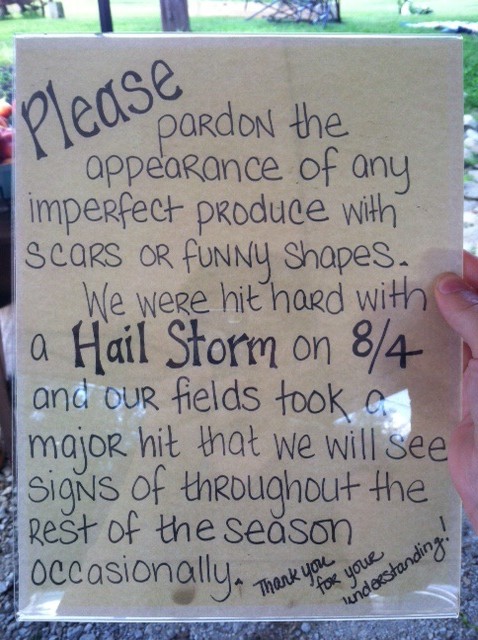 Please
pardon the
appearance of any
imperfect produce with
scars or funny shapes.
We were hit hard with
a Hail Storm on 8/4
and our fields took a
major hit that we will see
signs of throughout the
rest of the season
occasionally. Thank you
for your
understanding!